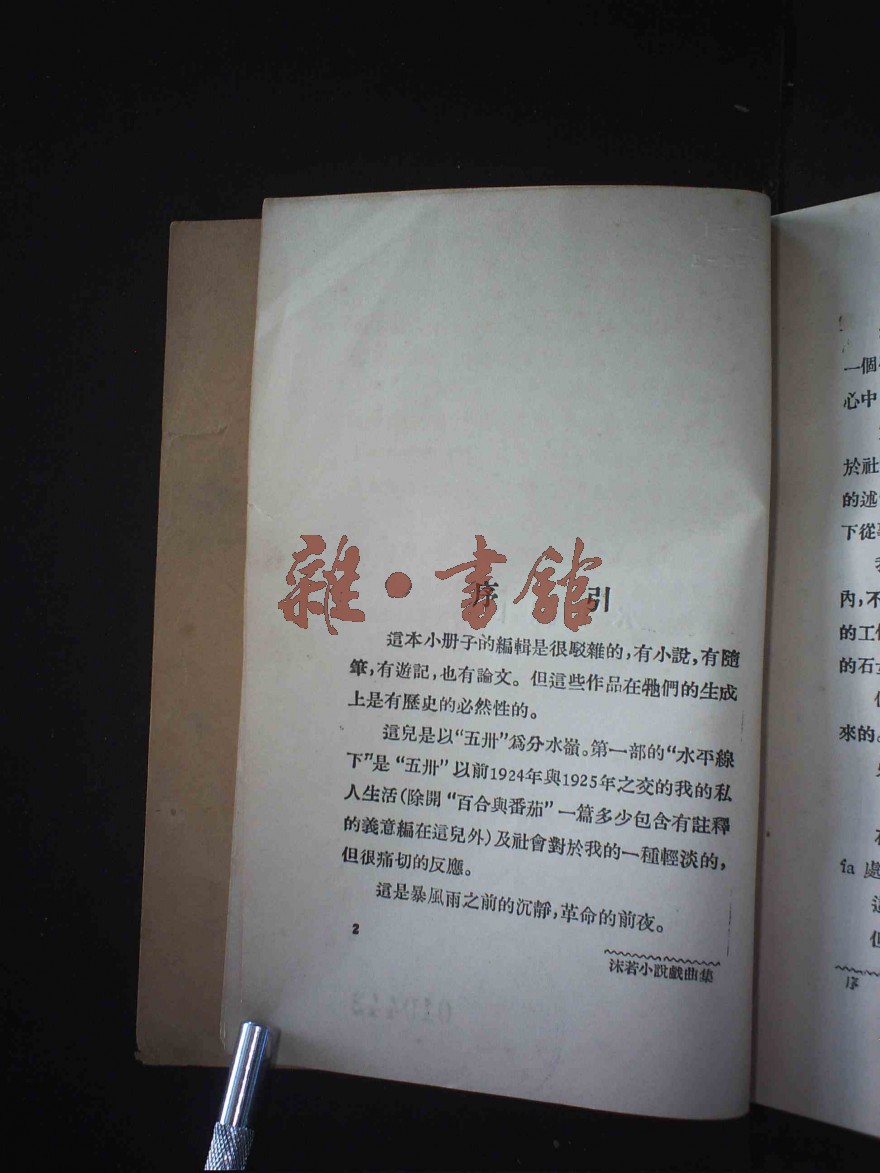 雜·書館
序引
這本小册子的編輯是很駁雜的,有小說,有隨
筆,有遊記,也有論文。但這些作品在牠們的生成
上是有歷史的必然性的。
這兒是以“五卅”爲分水嶺。第一部的“水平線
下”是“五卅”以前1924年與1925年之交的我的私
人生活(除開“百合與番茄”一篇多少包含有註釋
的義意編在這兒外)及社會對於我的一種輕淡的,
但很痛切的反應。
這是暴風雨之前的沉靜,革命的前夜。
2
沫若小說戲曲集
一個
心中
於社
的述
下從
內,不
的工作
的石
來的。
ia 處
這
但
序